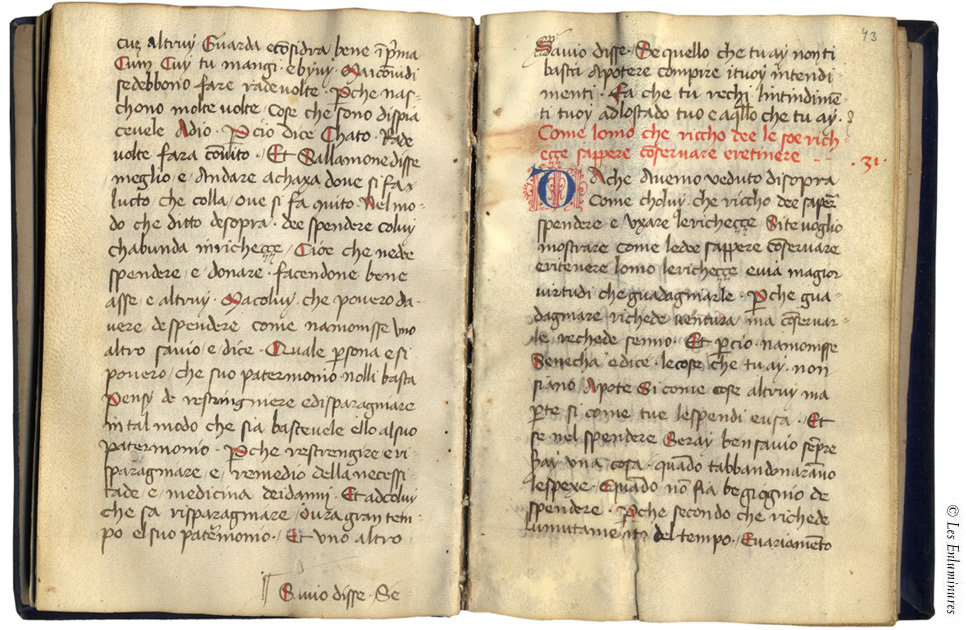 cuȝ altruy Guarda ecõsidra bene ĩp̃ma
Cum Cuy tu mangi · e biuy · Ma icõuidi
se debbono fare rade volte · P̱che nas-
chono molte volte · Cose che sono dispia
ceuele Adio · P̱cio dice Chato · Rade
volte fara cõuito · Et Sallamone disse
meglio e Andare achaxa doue si fa
lucto che colla oue si fa quito Nel mo-
do che ditto desopra · dee spendere coluy
chabunda in richeççe · Cioe che ne dee
spendere e donare · facendone bene
asse e altruy · Macoluy che pouero da-
uere de spendere come namonisse vno
altro sauio e dice · Quale p̱sona e si
pouero che suo patermonio nolli basta
Pensy de restringnere e disparagniare
in tal modo che sia basteuele ello al suo
patermonio · P̱che restrengire e ri-
sparagniare e remedio della necessi-
tade e medicina dei danny · Et ad coluy
che sa risparagniare dura gran tem-
po el suo patermonio · Et vno altro
Sauio disse · Se
43
Sauio disse · Se quello che tu ay non ti
basti Apotere compire i tuoy intendi
menti · Fa che tu rechi lintindimẽ-
ti tuoy adlo stado tuo e aq̃llo che tu ay ·
Come lomo che riccho dee le soe rich-
eçe sappere cõseruare e retinere · 31 ·
DAche Auemo veduto disopra
Come choluy che riccho dee saper
spendere e vxare le richeççe Si te voglio
mostrare come le dee sappere cõseruare
e ritenere lomo le richeççe e uia magior
virtudi che guadagniarle · P̱che gua-
dagniare richede ventura ma cõseruar-
le richede senno · Et p̱cio namonisse
Senecha e dice · le cose che tu ay · non
siano Apote Si come cose altruy ma
p̱te si come tue le spendi e usa · Et
se nel spendere Seray ben sauio sẽpre
hay vna cosa · quãdo tabbandonarãno
le spexe · Quãdo nõ fia begiognio de
spendere · P̱che secondo che richede
lumutamento del tempo · Euariamẽto
© Les Enluminures